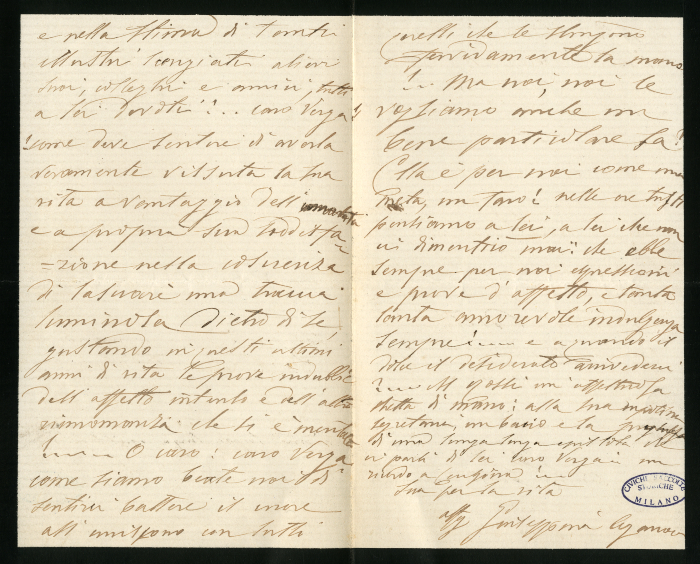 e nella stima di tanti
illustri scenziati allievi
suoi, colleghi e amici, tutti
a lei devoti!.. caro Verga!
come deve sentire di averla
veramente vissuta la sua
vita a vantaggio dell'umanità
e a propria sua soddisfa
=zione nella coscienza
di lasciare una traccia
luminosa dietro di se,
gustando in questi ultimi
anni di vita le prove indubbie
dell'affetto intenso e dell'alta
rinomanza che si è meritata
!..... O caro! caro Verga
come siamo beate noi di
sentire battere il cuore
all'unissono con tutti
quelli che le stringono
fervidamente la mano
!... Ma noi, noi le
vogliamo anche un
bene particolare sa!
Ella è per noi come una
meta, un faro! nelle ore tristi
pensiamo a lei, a lei che non
ci dimenticò mai!! che ebbe
sempre per noi espressioni
e prove d'affetto, e tanta
tanta amorevole indulgenza
sempre!.... e a quando il
dolce il desiderato arrivederci
?.... affettuosa
stretta di mano; alla sua
segretaria, un bacio e la preghiera
di una lunga lunga epistola che
ci parli di lei caro Verga
ricordo a
Sua per la vita
Giuseppina
CIVICHE RACCOLTE
STORICHE
MILANO